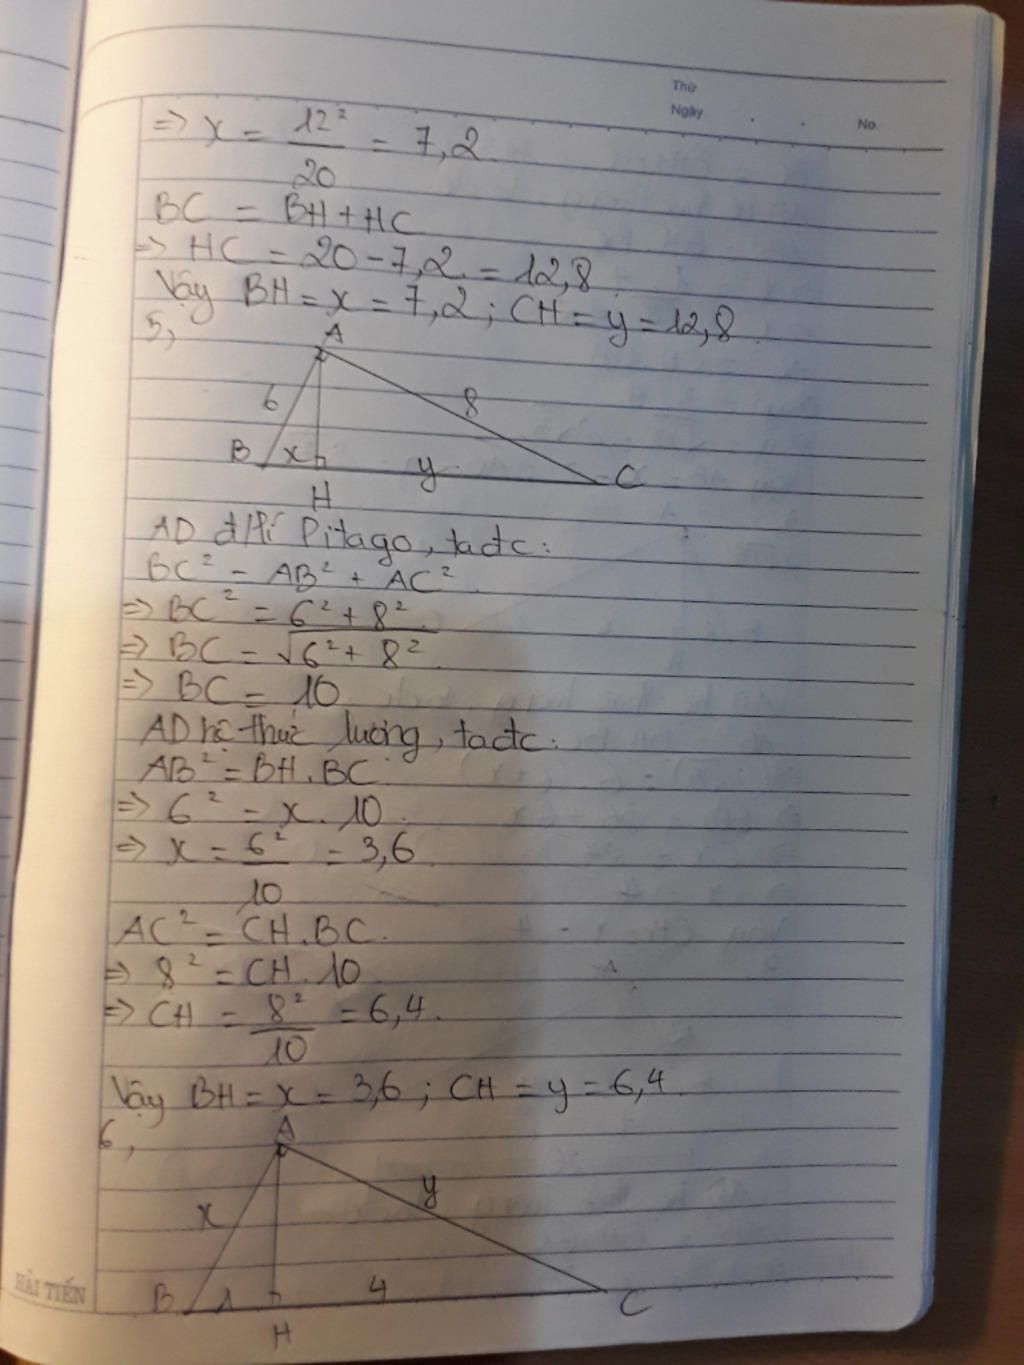 Thứ
Ngày
No.
=> x = 12² / 20 = 7,2
BC = BH + HC
=> HC = 20 - 7,2 = 12,8
Vậy BH = x = 7,2 ; CH = y = 12,8
5,
A
6
8
B x y C
H
AD đ/lí Pitago, tađc:
BC² = AB² + AC²
=> BC² = 6² + 8²
=> BC = √6² + 8²
=> BC = 10
AD hệ thức lương, tađc:
AB² = BH . BC
=> 6² = x . 10
=> x = 6² / 10 = 3,6
AC² = CH . BC
=> 8² = CH . 10
=> CH = 8² / 10 = 6,4
Vậy BH = x = 3,6 ; CH = y = 6,4
6,
A
x
y
B 1 4 C
H
HẢI TIẾN